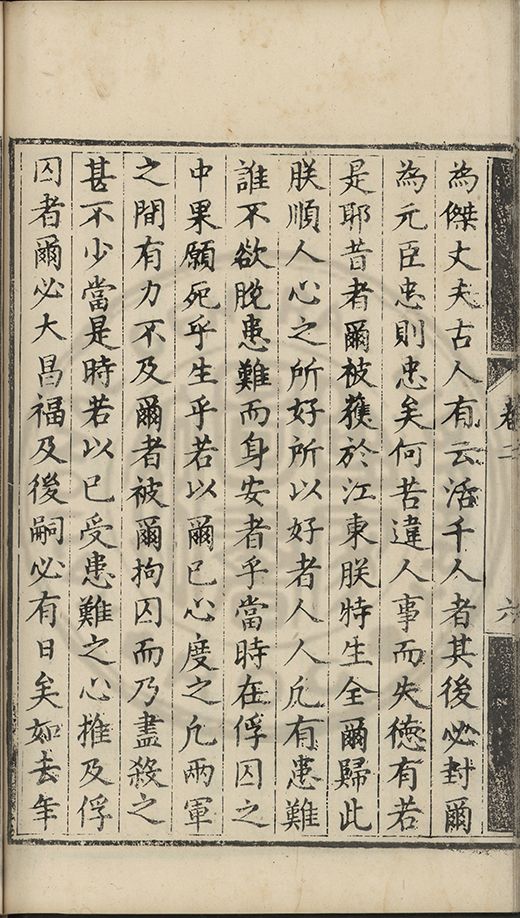 卷二
六
為傑丈夫古人有云活千人者其後必封爾
為元臣忠則忠矣何若違人事而失德有若
是耶昔者爾被獲於江東朕特生全爾歸此
朕順人心之所好所以好者人人凢有患難
誰不欲脫患難而身安者乎當時在俘囚之
中果願死乎生乎若以爾已心度之凢兩軍
之間有力不及爾者被爾拘囚而乃盡殺之
甚不少當是時若以已受患難之心推及俘
囚者爾必大昌福及後嗣必有日矣如去年